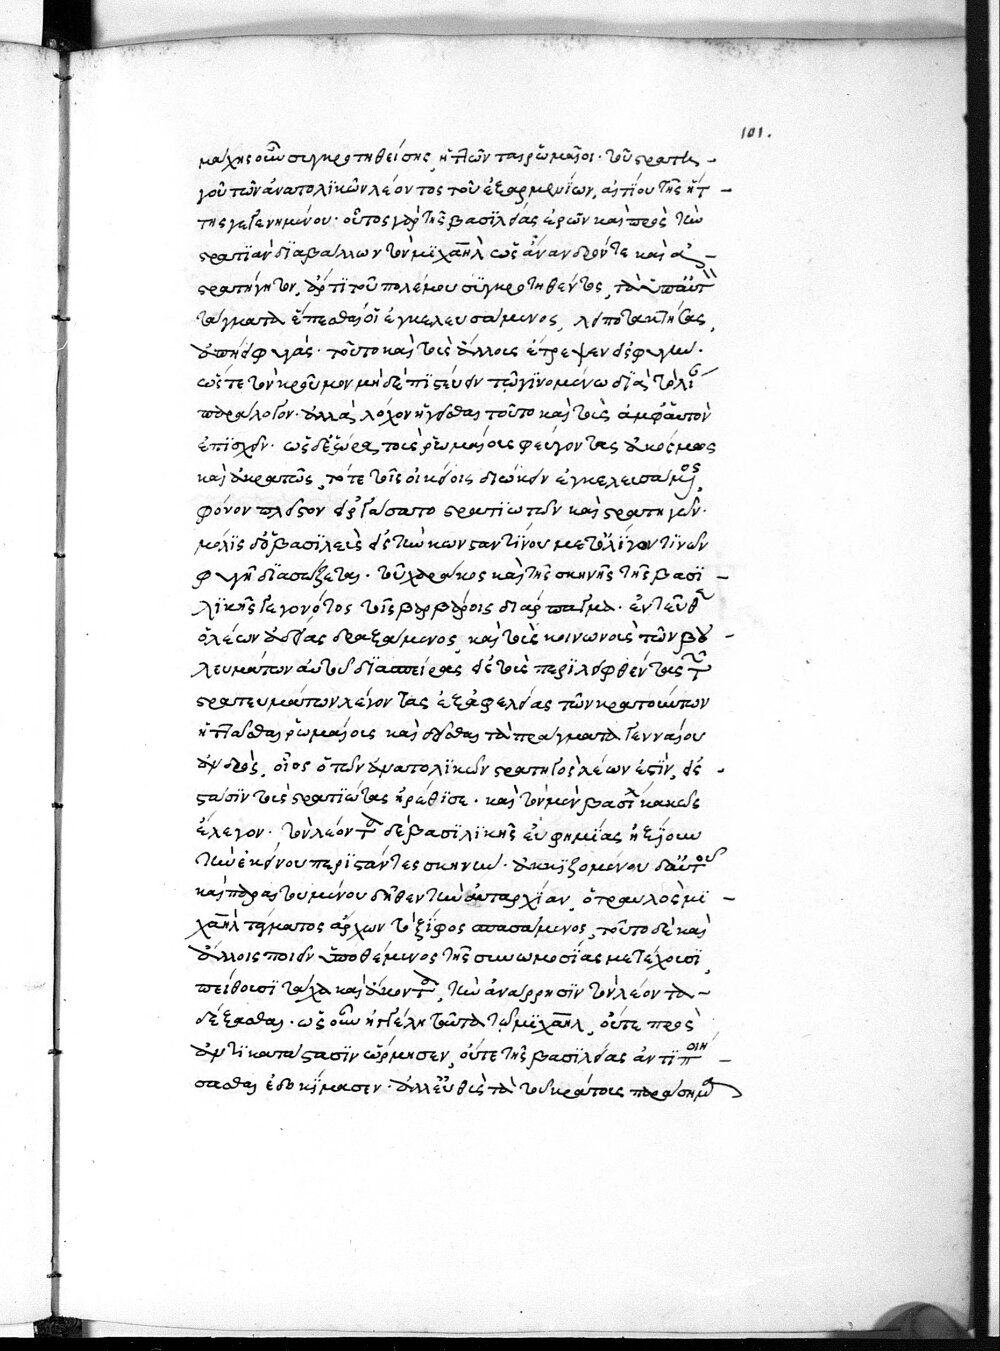 101.
μάχης οὖν συγκροτηθείσης, ἡττῶνται ῥωμαῖοι· τοῦ στρατη-
γοῦ τῶν ἀνατολικῶν λέοντος τοῦ ἐξ ἀρμενίων, αἰτίου τῆς ἥτ-
της γεγενημένου· οὗτος γὰρ τῆς βασιλείας ἐρῶν καὶ πρὸς τὴν
στρατιὰν διαβάλλων τὸν μιχαὴλ ὡς ἄνανδρόν τε καὶ ἀ-
στρατήγητον, ἄρτι τοῦ πολέμου συγκροτηθέντος, τὰ ὑπ' αὐτὸν
τάγματα ἕπεσθαί οἱ ἐγκελευσάμενος, λειποτακτήσας,
ἀπῄει φυγάς· τοῦτο καὶ τοὺς ἄλλους ἔτρεψεν εἰς φυγήν·
ὥστε τὸν κροῦμον μηδὲ πιστεύειν τῷ γινομένῳ διὰ τὸ λί
παράλογον· ἀλλὰ λόχον ἡγεῖσθαι τοῦτο καὶ τοὺς ἀμφ' αὐτὸν
ἐπισχεῖν· ὡς δ' ἑώρα τοὺς ῥωμαίους φεύγοντας ἀκόσμως
καὶ ἀκρατῶς, τότε τοῖς οἰκείοις διώκειν ἐγκελευσάμενος,
φόνον πλεῖστον εἰργάσατο στρατιωτῶν καὶ στρατηγῶν·
μόλις δ' ὁ βασιλεὺς εἰς τὴν κωνσταντίνου μετ' ὀλίγων τινῶν
φυγῇ διασώζεται· τοῦ χάρακος καὶ τῆς σκηνῆς τῆς βασι-
λικῆς γεγονότος τοῖς βαρβάροις διαρπαγμα· ἐντεῦθεν
ὁ λέων ἀδείας δραξάμενος, καὶ τοὺς κοινωνοὺς τῶν βου-
λευμάτων αὐτοῦ διασπείρας εἰς τοὺς περιλειφθέντας τῶν
στρατευμάτων λέγοντας ἐξ ἀφελείας τῶν κρατούντων
ἡττᾶσθαι ῥωμαίους καὶ δεῖσθαι τὰ πράγματα γενναίου
ἀνδρὸς, οἷος ὁ τῶν ἀνατολικῶν στρατηγὸς λέων ἐστὶν, εἰς
στάσιν τοὺς στρατιώτας ἠρέθισε· καὶ τὸν μὲν βασιλέα κακῶς
ἔλεγον· τὸν λέοντα δὲ βασιλικῆς εὐφημίας ἠξίουν
τὴν ἐκείνου περιστάντες σκηνήν· ἀκκιζομένου δ' αὐτοῦ
καὶ παραιτουμένου δῆθεν τὴν ἀνταρχίαν, ὁ τραυλὸς μι-
χαὴλ τάγματος ἄρχων τὸ ξίφος σπασάμενος, τοῦτο δὲ καὶ
ἄλλοις ποιεῖν ὑποθέμενος τῆς συνωμοσίας μετέχουσι,
πείθουσι τάχα καὶ ἄκοντα, τὴν ἀνάρρησιν τὸν λέοντα
δέξασθαι· ὡς οὖν ἠγγέλη ταῦτα τῷ μιχαὴλ, οὔτε πρὸς
ἀντικατάστασιν ὥρμησεν, οὔτε τῆς βασιλείας ἀντιποιή-
σασθαι ἐδοκίμασεν· ἀλλ' εὐθὺς τὰ τοῦ κράτους παράσημα